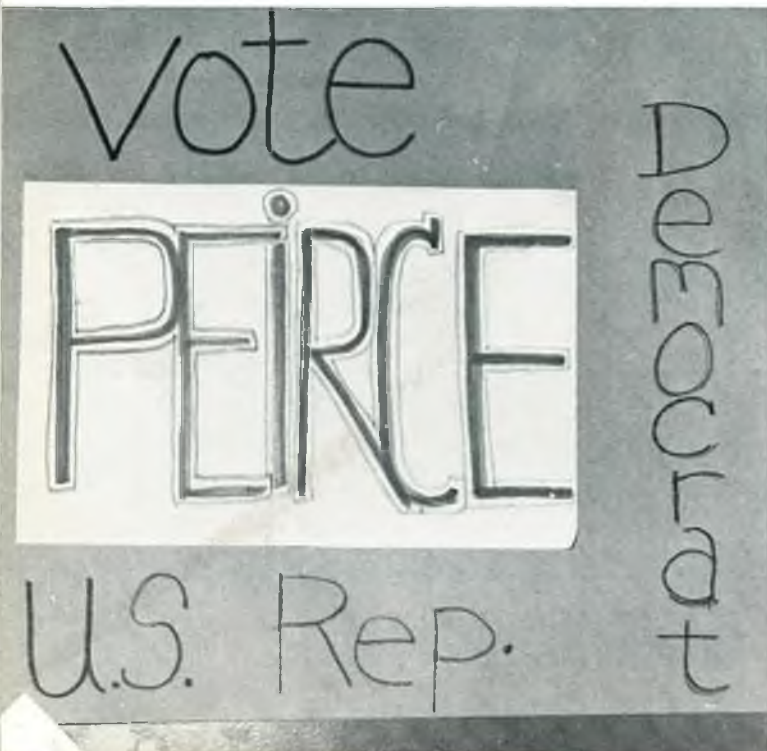 Vote
PEiRCE
U.S. Rep.
Democrat